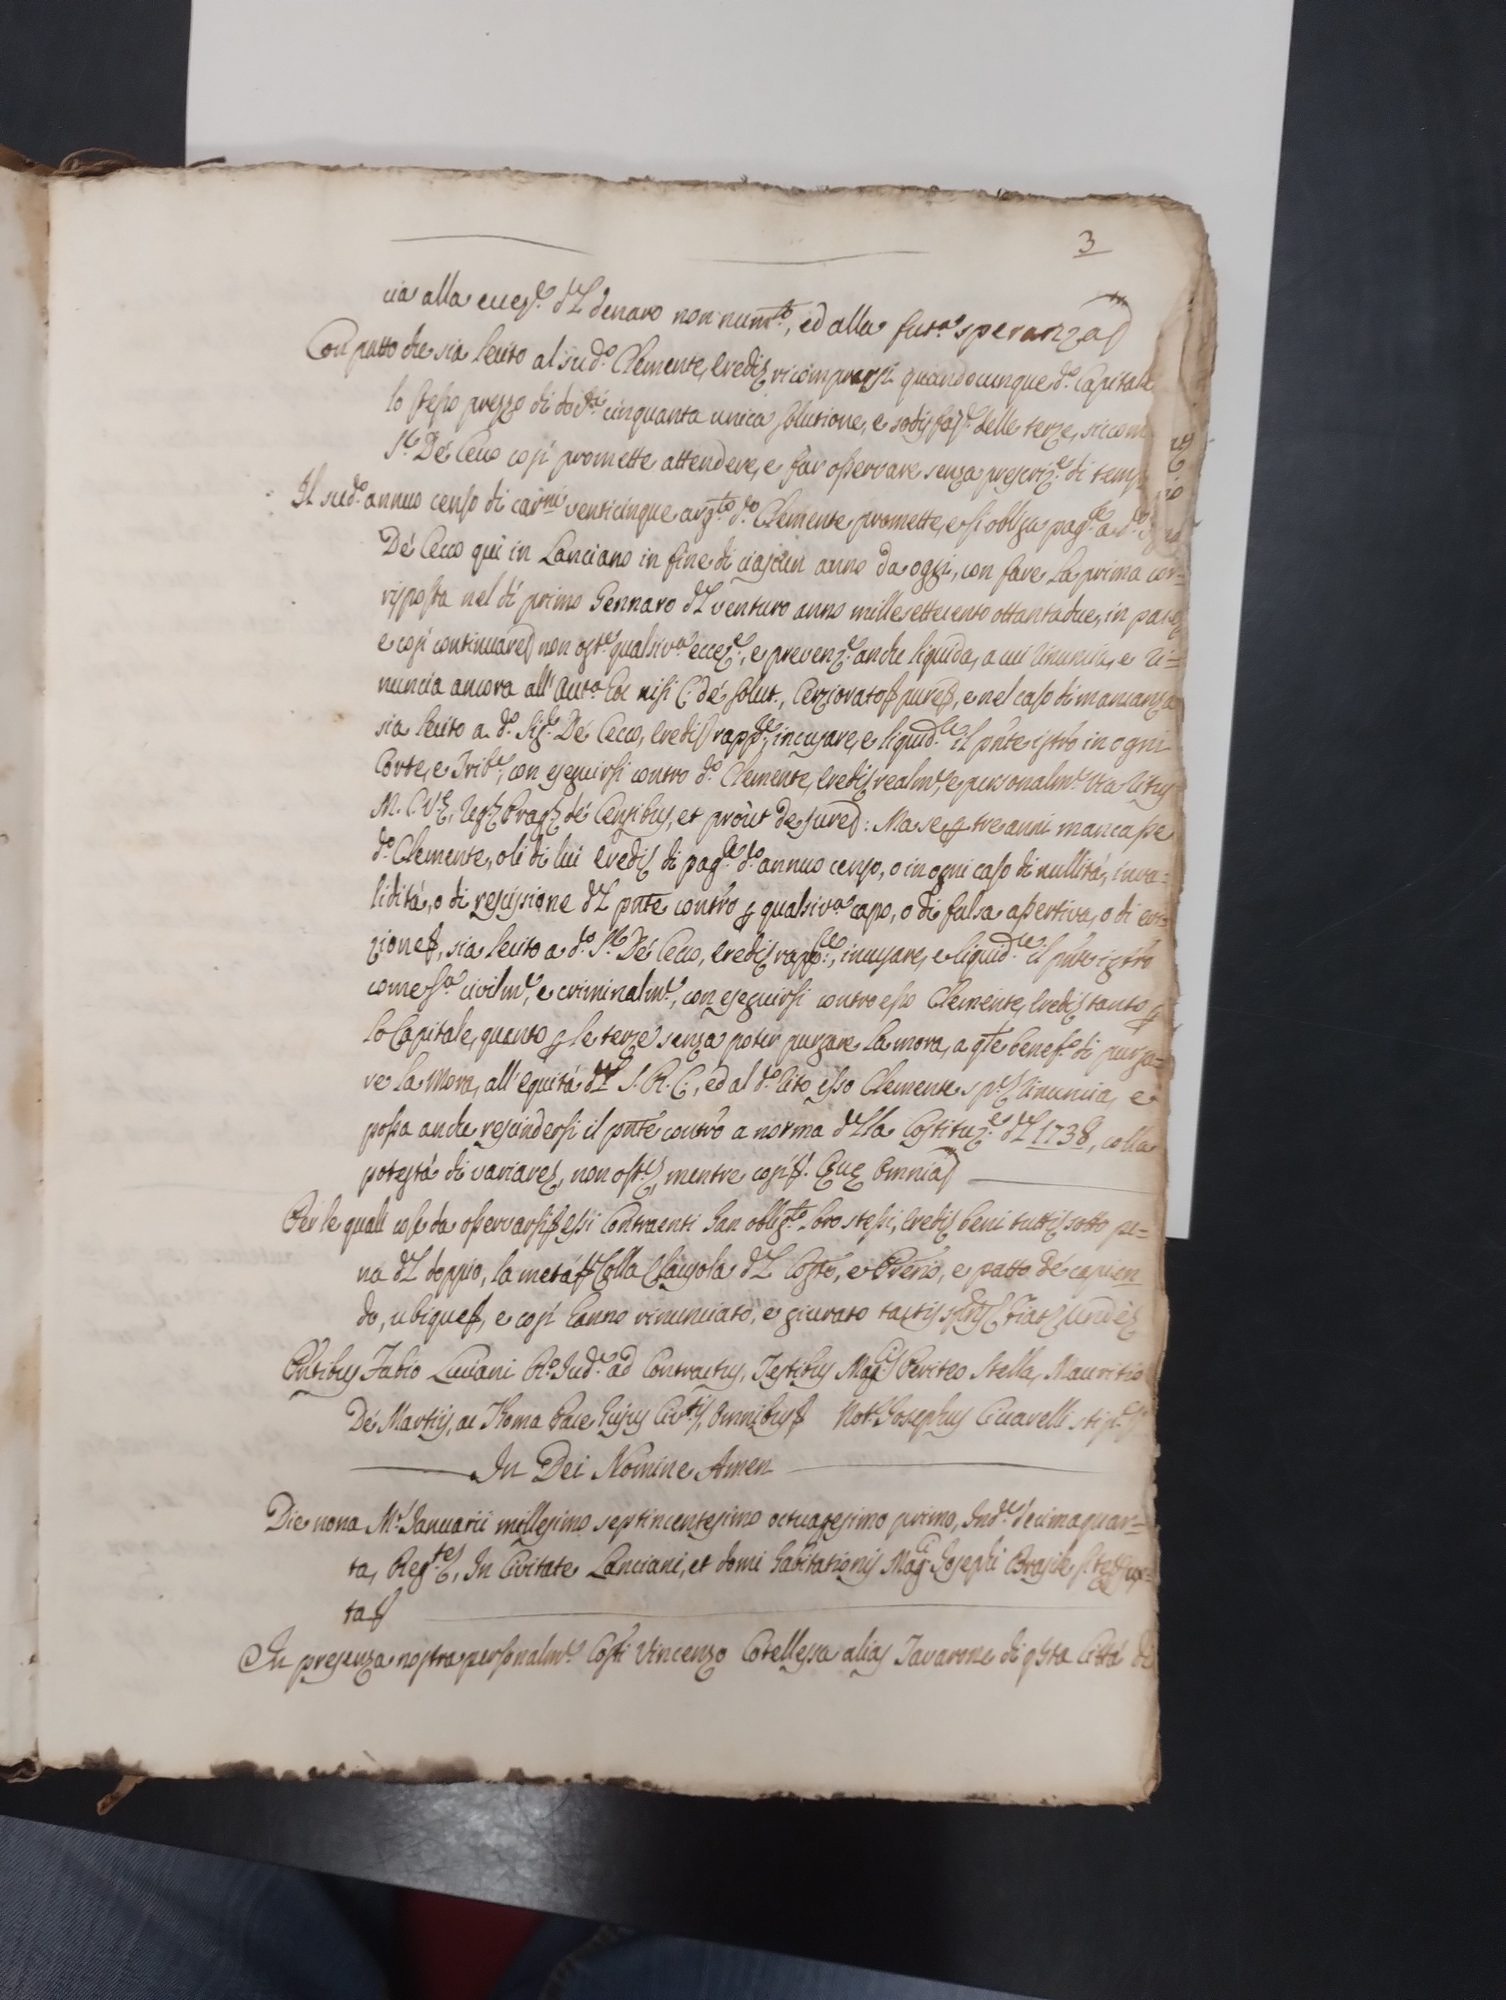 3
cia alla eccez.e d'l denaro non num.to, ed alla fut.a speranza
Con patto che sia lecito al sud.o Clemente, eredi ricomprarsi quandocunque d.o Capitale
lo stesso prezzo di doc.ti cinquanta unica solutione, e sodisfaz.e delle terze, siccom
S.r De Cecco così promette attendere, e far osservare senza prescriz.e di temp
Il sud.o annuo censo di car.ni venticinque arg.to d.o Clemente promette, e si obliga pag.le a d.o
De Cecco qui in Lanciano in fine di ciascun anno da oggi, con fare la prima cor=
risposta nel dì primo Gennaro d'l venturo anno millesettecento ottantadue, in pace
e così continuare non ost.e qualsiv.a eccez.e, e prevenz.e anche liquida, a cui rinuncia, e ri=
nuncia ancora all'Aut.a hoc nisi C. de solut., Cerziorato pure, e nel caso di mancanza
sia lecito a d.o Sig.r De Cecco, eredi rapp.le, incusare, e liquid.le il pnte istro in ogni
Corte, e Trib.e, con eseguirsi contro d.o Clemente, eredi realm.e, e personalm.e via ritus
M. C. V., Reg. Prag. de Censibus, et prout de jure: Ma se p tre anni mancasse
d.o Clemente, o li di lui eredi di pag.le d.o annuo censo, o in ogni caso di nullità, inva=
lidità, o di rescissione d'l pnte contro p qualsiv.a capo, o di falsa assertiva, o di evi=
zione, sia lecito a d.o S.r De Cecco, eredi rapp.le, incusare, e liquid.le il pnte istro
come s.a civilm.e, e criminalm.e, con eseguirsi contro esso Clemente, eredi tanto p
lo Capitale, quanto p le terze senza poter purgare la mora, a qte benef.o di purga=
re la mora, all'equità d'l S. R. C., ed al d.o rito esso Clemente sp.te rinuncia, e
possa anche rescindersi il pnte contro a norma d'lla Costituz.e d'l 1738, colla
potestà di variare, non ost.e, mentre così. Que Omnia
Per le quali cose da osservarsi essi Contraenti han oblig.to loro stessi, eredi beni tutti sotto pe=
na d'l doppio, la metà Colla Clausola d'l Costo, e Prerio, e patto de capien
do, ubique, e così hanno rinunciato, e giurato tactis Unde
Pntibus Fabio Luciani R.o Jud.e ad Contractus, Testibus Mag.cis Periteo Stella, Mauritio
De Martijs, ac Thoma Pace hujus Civ.tis, omnibus Not.r Josephus Ciavelli stip.
In Dei Nomine Amen
Die nona M.s Januarii millesimo septincentesimo octuagesimo primo, Ind.e decimaquar=
ta, Reg.te, In Civitate Lanciani, et domi habitationis Mag.ci Josephi Brasile
ta
In presenza nostra personalm.e Costi Vincenzo Cotellessa alias Tavarone di qsta Città di